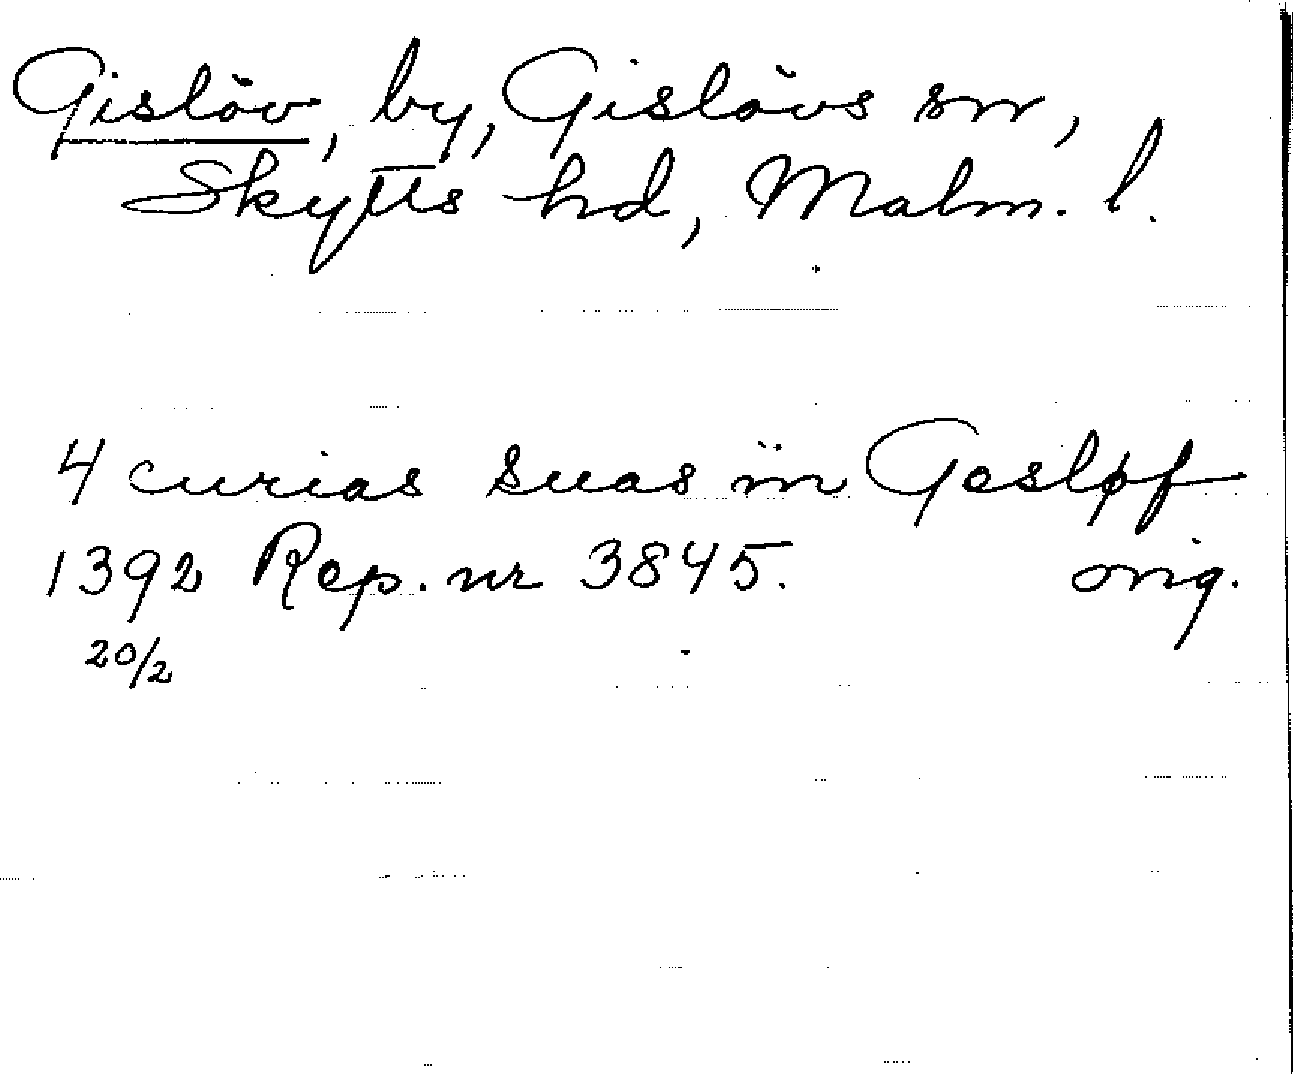 Gislöv, by, Gislövs sn,
Skytts hd, Malm. l.
4 curias suas in Gesløf
1392 Rep. nr 3845. orig.
20/2